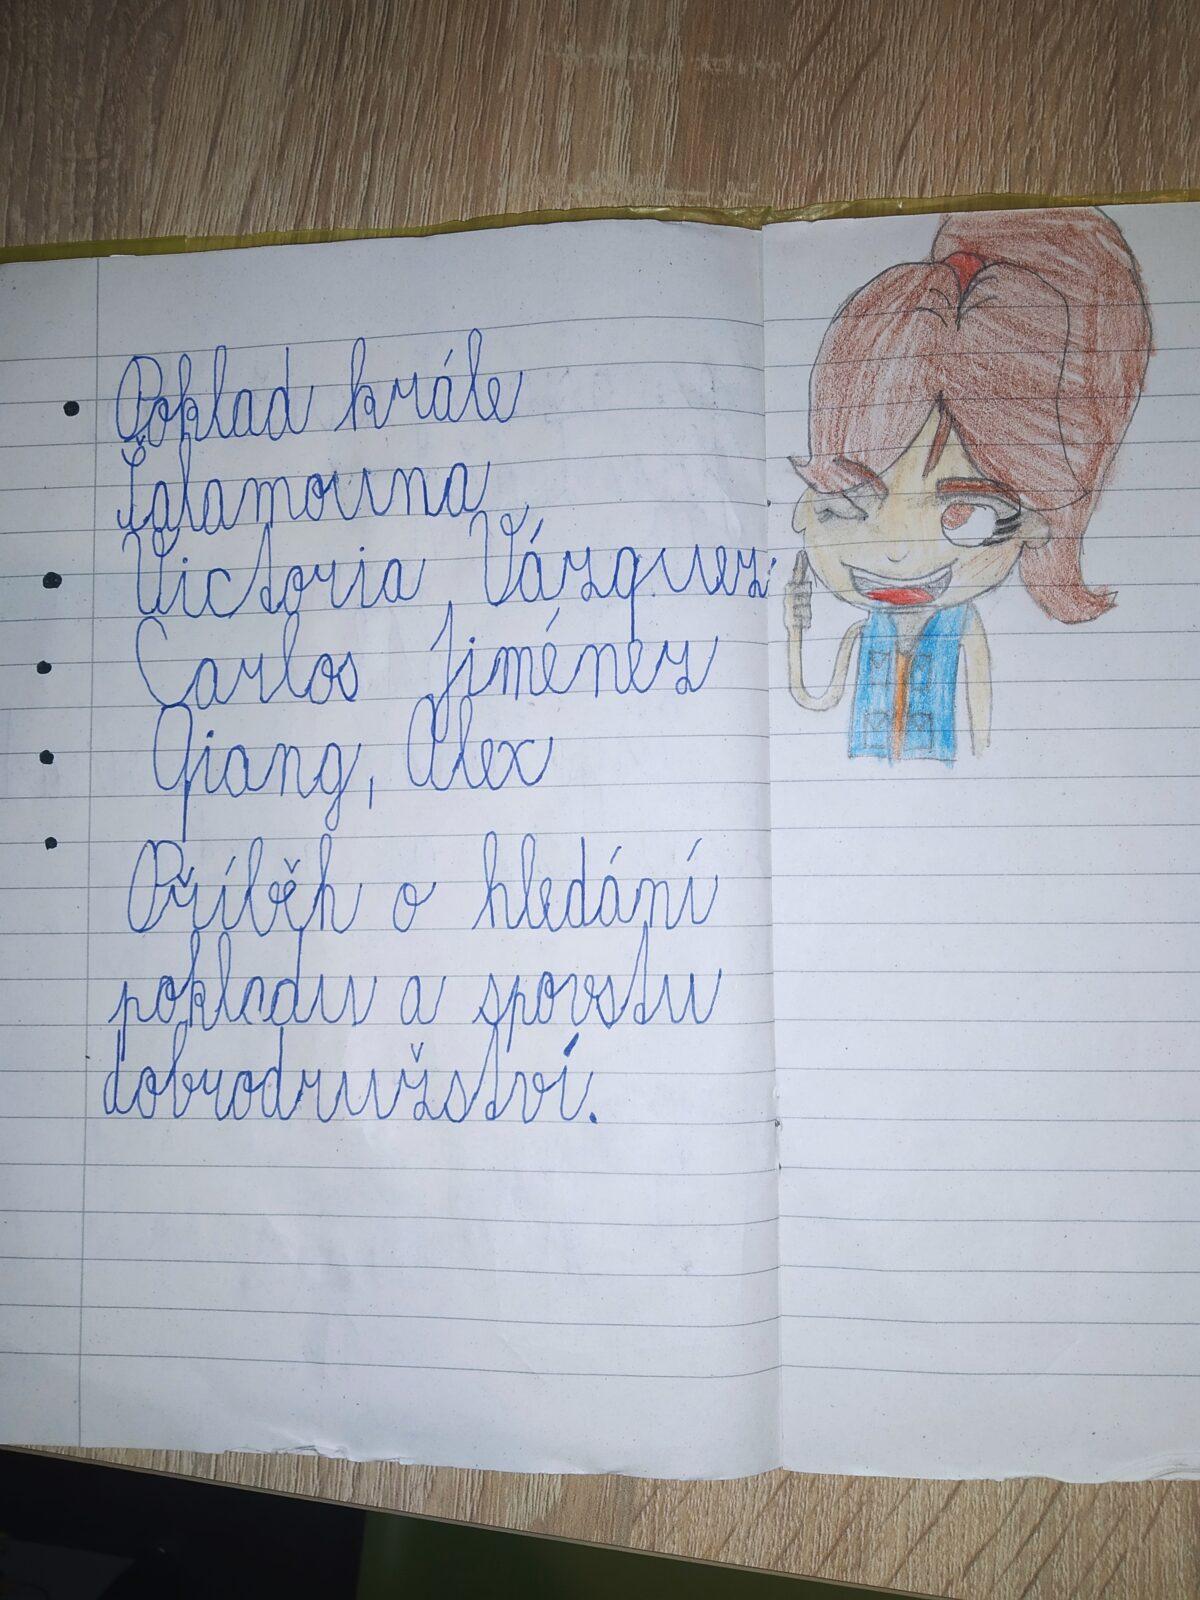 Poklad krále
Šalamouna
Victoria Vázquez
Carlos Jiménez
Qiang, Alex
Příběh o hledání
pokladu a spovstu
dobrodružství.